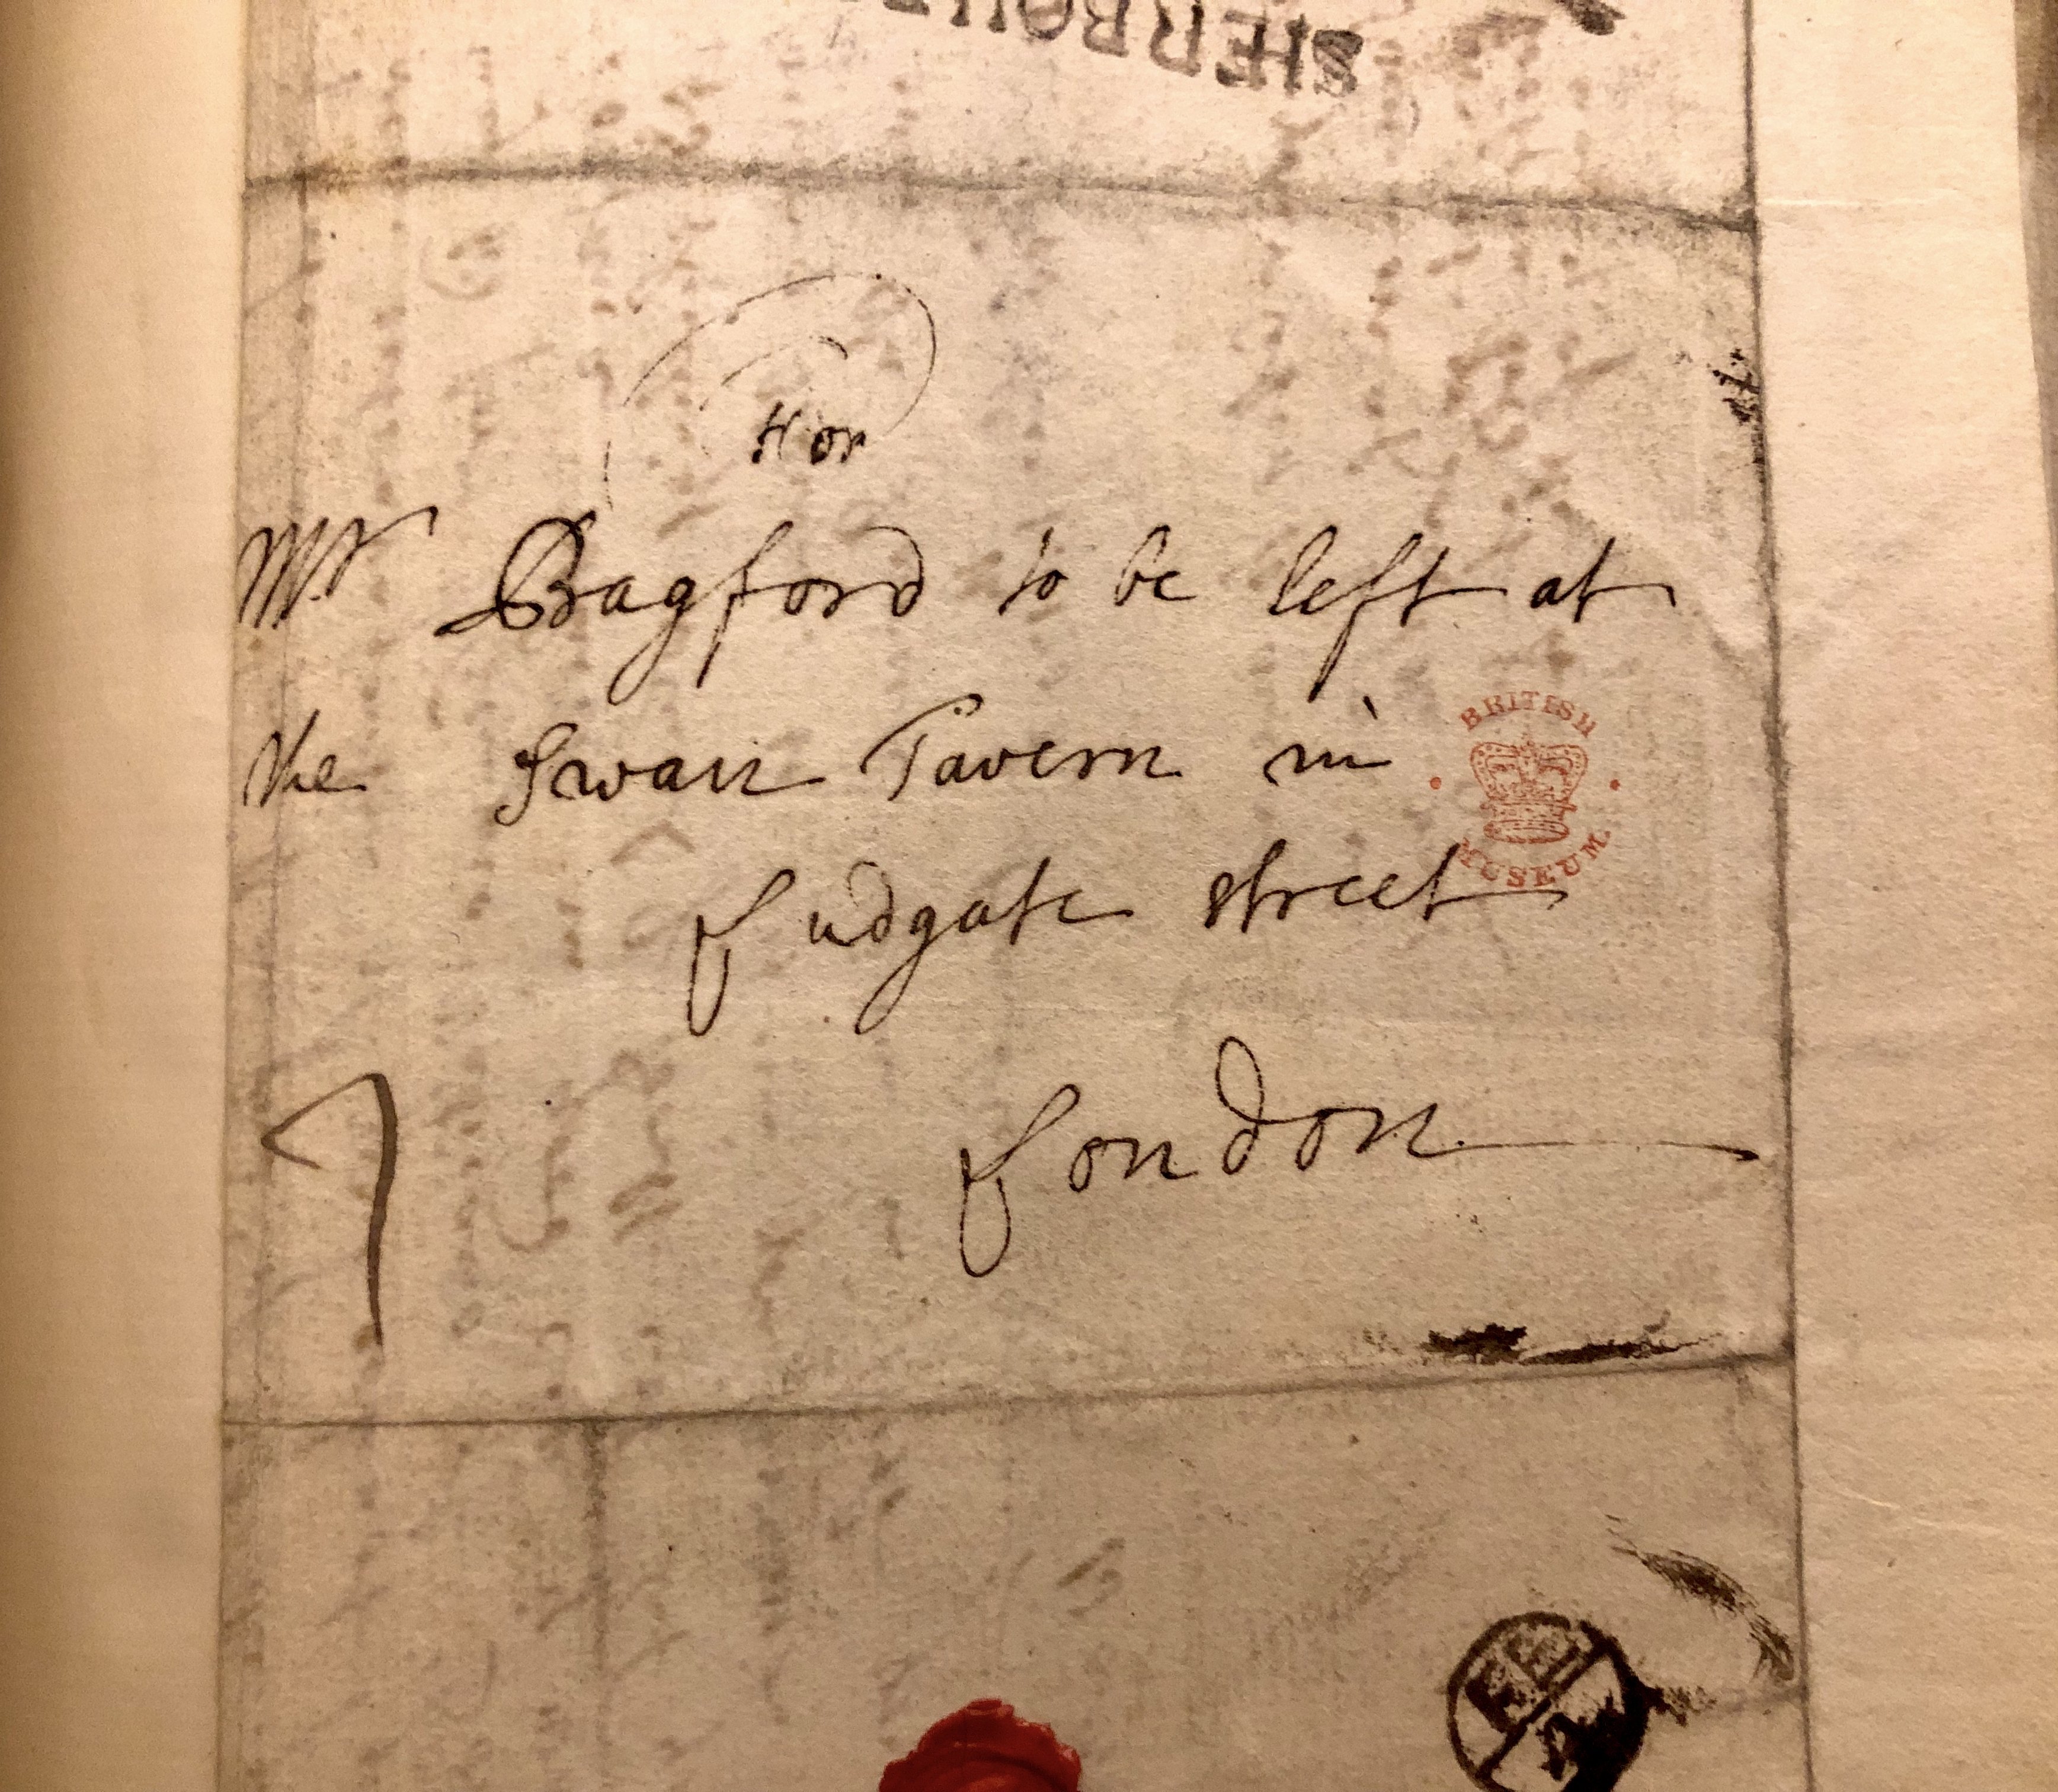 SHERBOU
For
Mr Bagford to be left at
the Swan Tavern in
BRITISH
MUSEUM
Ludgate street
London
7